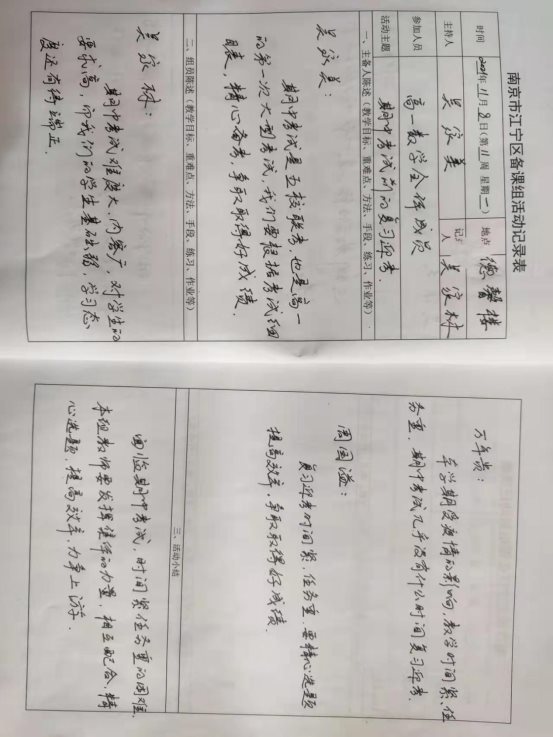 南京市江宁区备课组活动记录表
时间 2021年11月2日(第11周 星期二) 地点 德馨楼
主持人 吴家美 记录人 吴家林
参加人员 高一数学全体成员
活动主题 期中考试前的复习迎考.
一、主备人陈述(教学目标、重难点、方法、手段、练习、作业等)
吴家美:
期中考试是五校联考,也是高一
的第一次大型考试,我们要根据考试细
目表,精心备考,争取取得好成绩.
二、组员陈述(教学目标、重难点、方法、手段、练习、作业等)
吴家林:
期中考试难度大,内容广,对学生的
要求高,而我们的学生基础弱,学习态
度还有待端正.
万年贵:
本学期受疫情的影响,教学时间紧、任
务重,期中考试几乎没有什么时间复习迎考.
周国溢:
复习迎考时间紧,任务重,要精心选题
提高效率,争取取得好成绩.
三、活动小结
面临期中考试,时间紧任务重的困难.
本组教师要发挥集体的力量,相互配合,精
心选题,提高效率,力争上游.